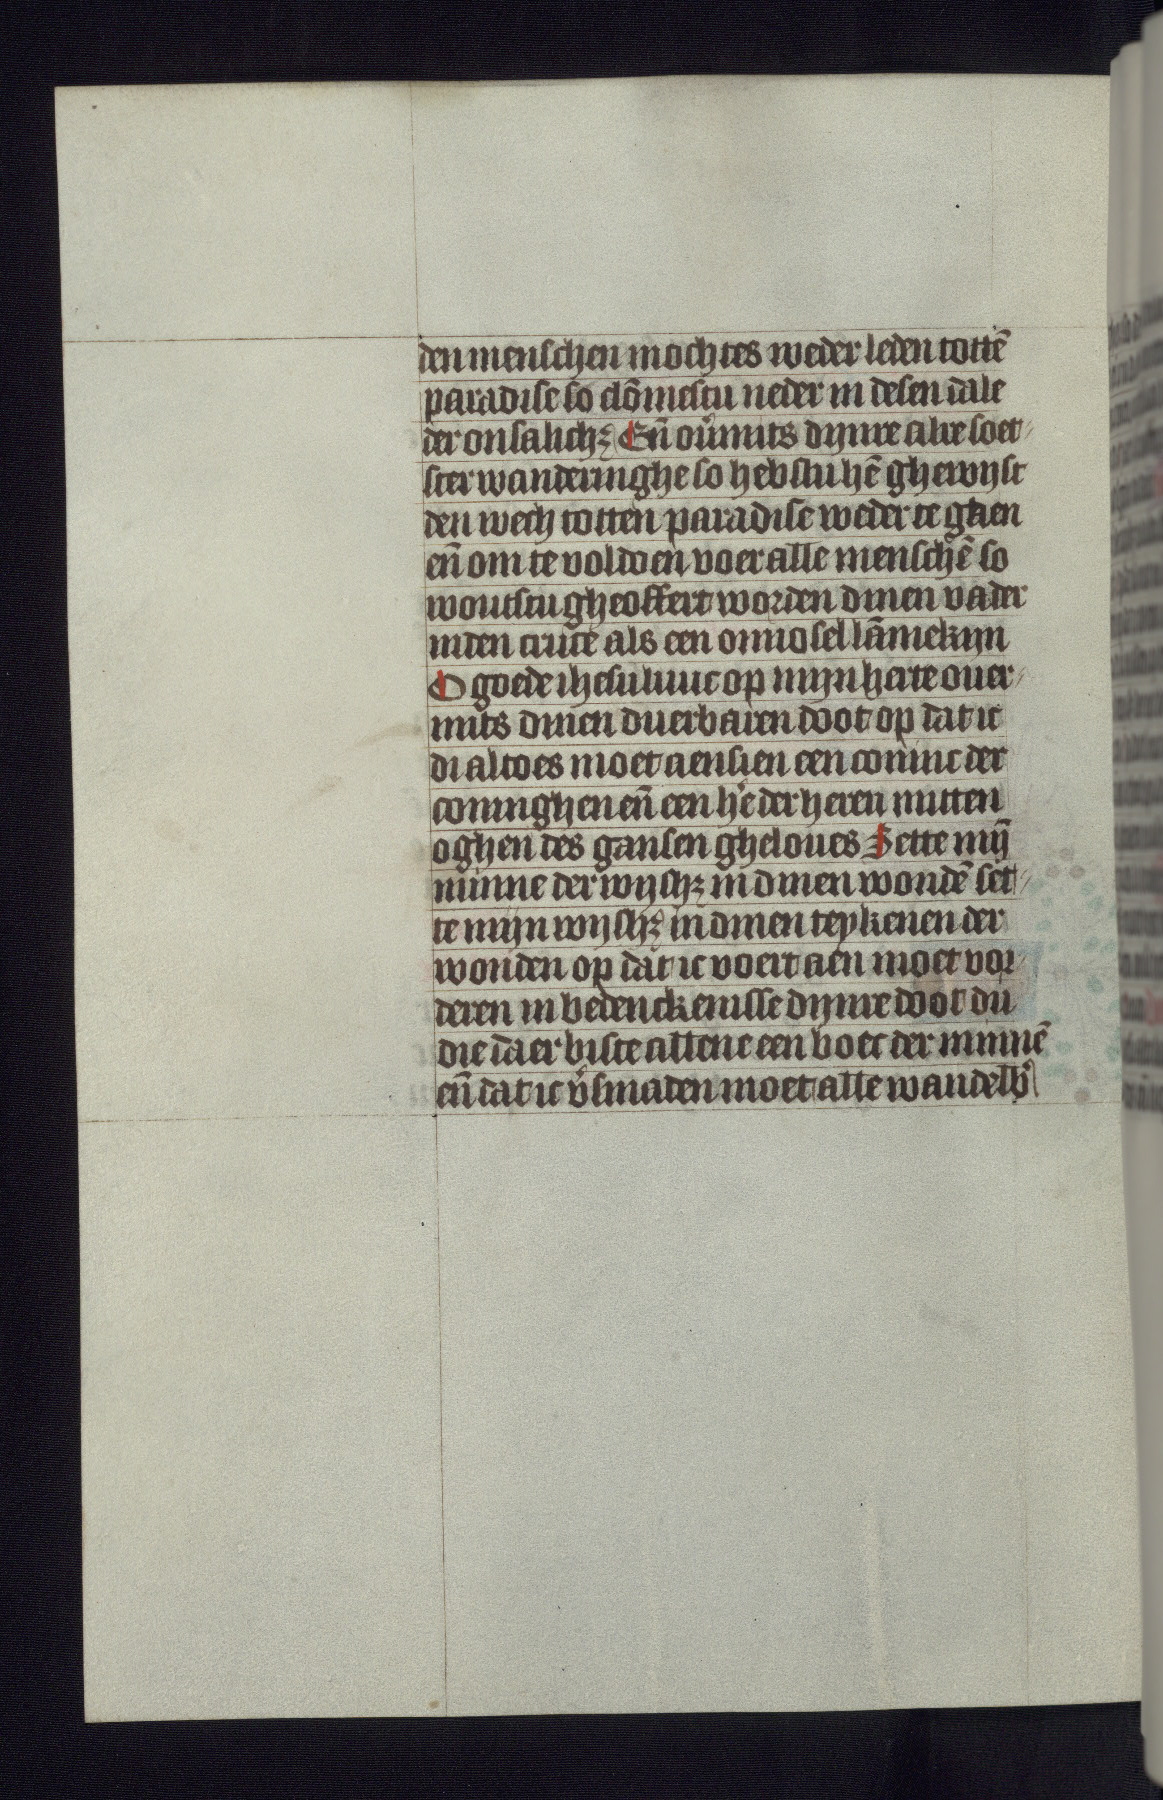 den menschen mochtes weder leden tottē
paradise so clōmestu neder in desen dale
der onsalichꝫ Eñ ou̾mits dijnre alre soet⸗
ster wanderinghe so hebstu hē ghewijst
den wech totten paradise weder te ghen
eñ om te voldoen voer alle menschē so
woutstu gheoffert worden dinen vader
inden cruce als een onnosel lāmekijn
O goede ihesu luuc op mijn herte ouer⸗
mits dinen duerbaren doot op dat ic
di altoes moet aensien een coninc der
coninghen eñ een he̾ der heren mitten
oghen des gansen gheloues Sette mij̄
minne der wijshꝫ in dinen wondē set⸗
te mijn wijshꝫ in dinen teykenen der
wonden op dat ic voert aen moet vor⸗
deren in bedenckenisse dijnre doot du
die daer biste allene een boec der minnē
eñ dat ic v̾smaden moet alle wandelb̾